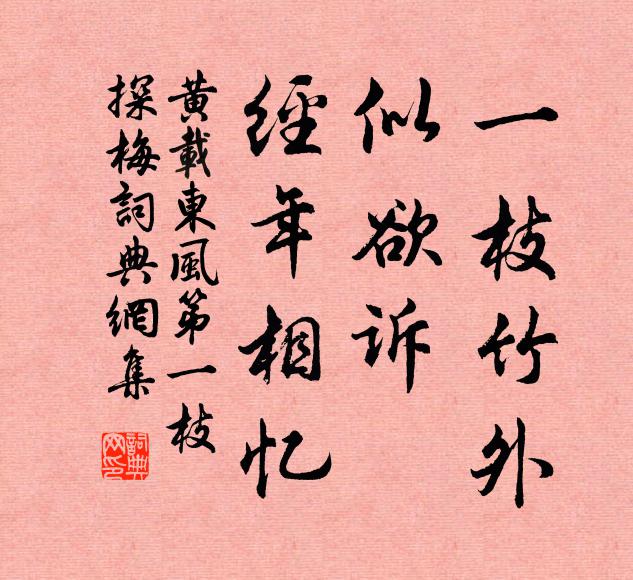 一枝竹外
似欲诉
經年相忆
黄載東風第一枝
探梅詞典網集
詞典网印